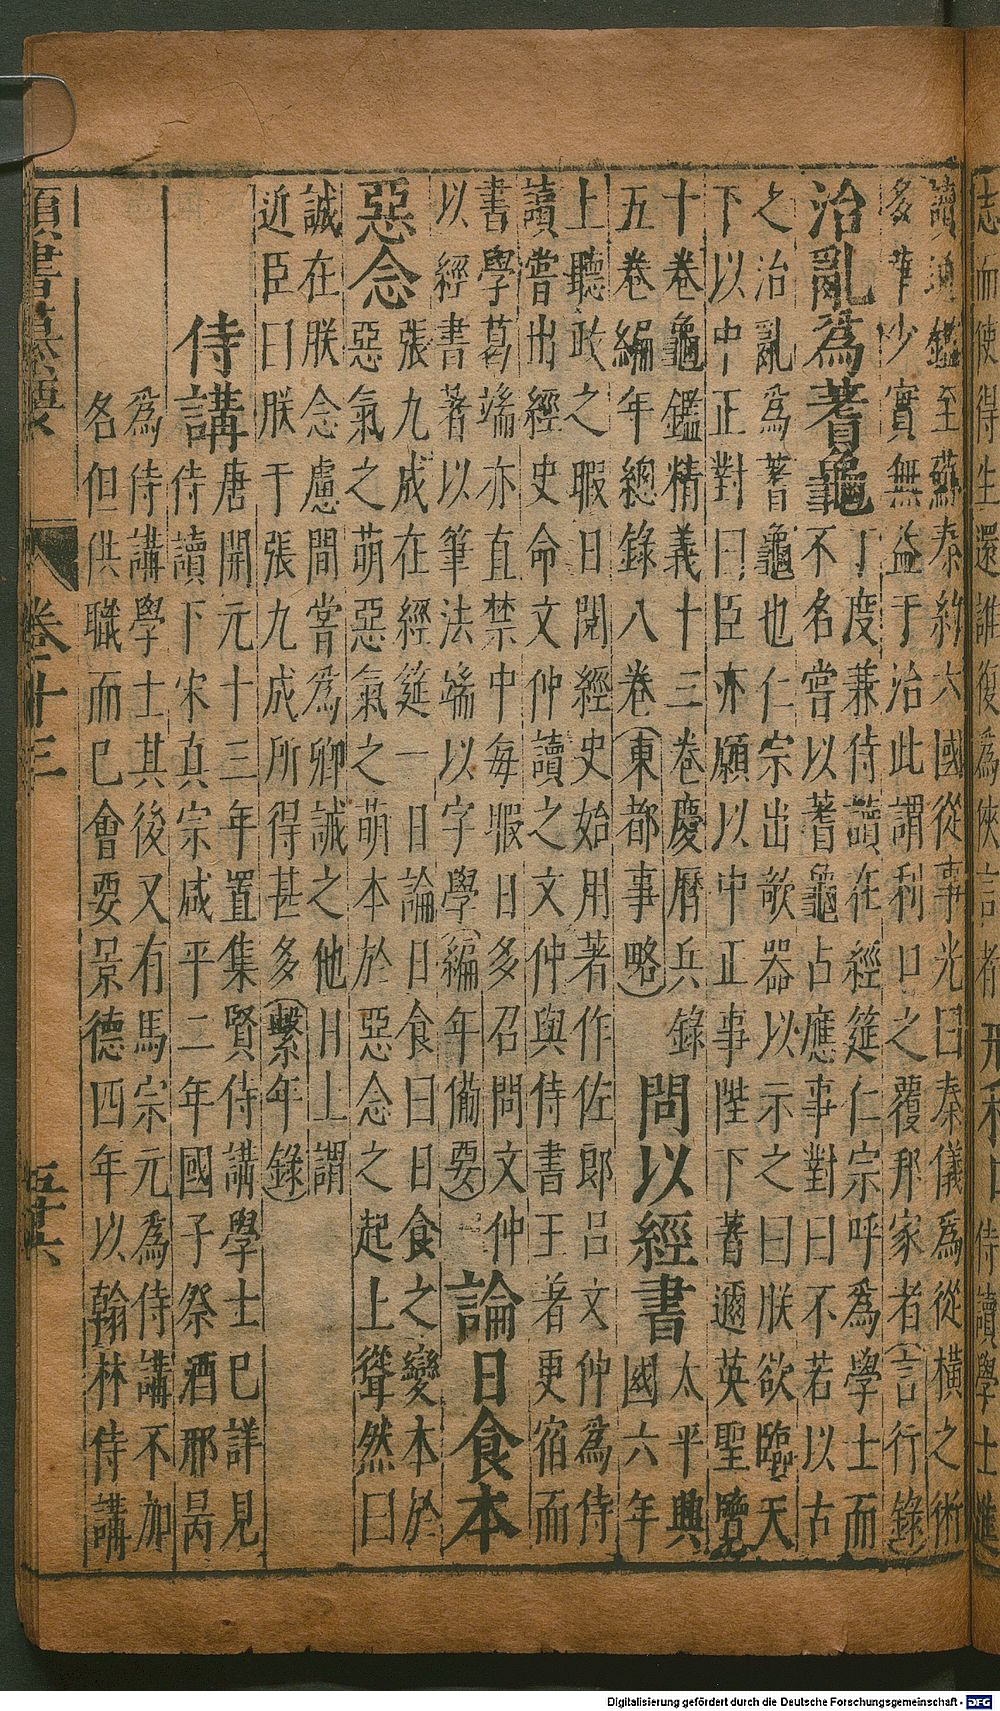 志而使得生還誰復爲俠言者
侍讀學士進
讀通鑑至蘇秦約六國從事光曰秦儀爲從橫之術
多華少實無益于治此謂利口之覆邦家者(言行錄)
治亂爲蓍龜
丁度兼侍讀在經筵仁宗呼爲學士而
不名嘗以蓍龜占應事對曰不若以古
之治亂爲蓍龜也仁宗出欹器以示之曰朕欲臨天
下以中正對曰臣亦願以中正事陛下蓍邇英聖覽
十卷龜鑑精義十三卷慶曆兵錄
五卷編年總錄八卷(東都事略)
問以經書
太平興
國六年
上聽政之暇日閱經史始用著作佐郎呂文仲爲侍
讀嘗出經史命文仲讀之文仲與侍書王著更宿而
書學葛端亦直禁中每暇日多召問文仲
以經書著以筆法端以字學(編年備要)
論日食本
惡念
張九成在經筵一日論日食曰日食之變本於
惡氣之萌惡氣之萌本於惡念之起上聳然曰
誠在朕念慮間當爲卿誡之他日上謂
近臣曰朕于張九成所得甚多(繫年錄)
侍講
唐開元十三年置集賢侍講學士已詳見
侍讀下宋真宗咸平二年國子祭酒邢昺
爲侍講學士其後又有馬宗元爲侍講不加
名但供職而已會要景德四年以翰林侍講
類書纂要
卷二十三
五十六
Digitalisierung gefördert durch die Deutsche Forschungsgemeinschaft - DFG